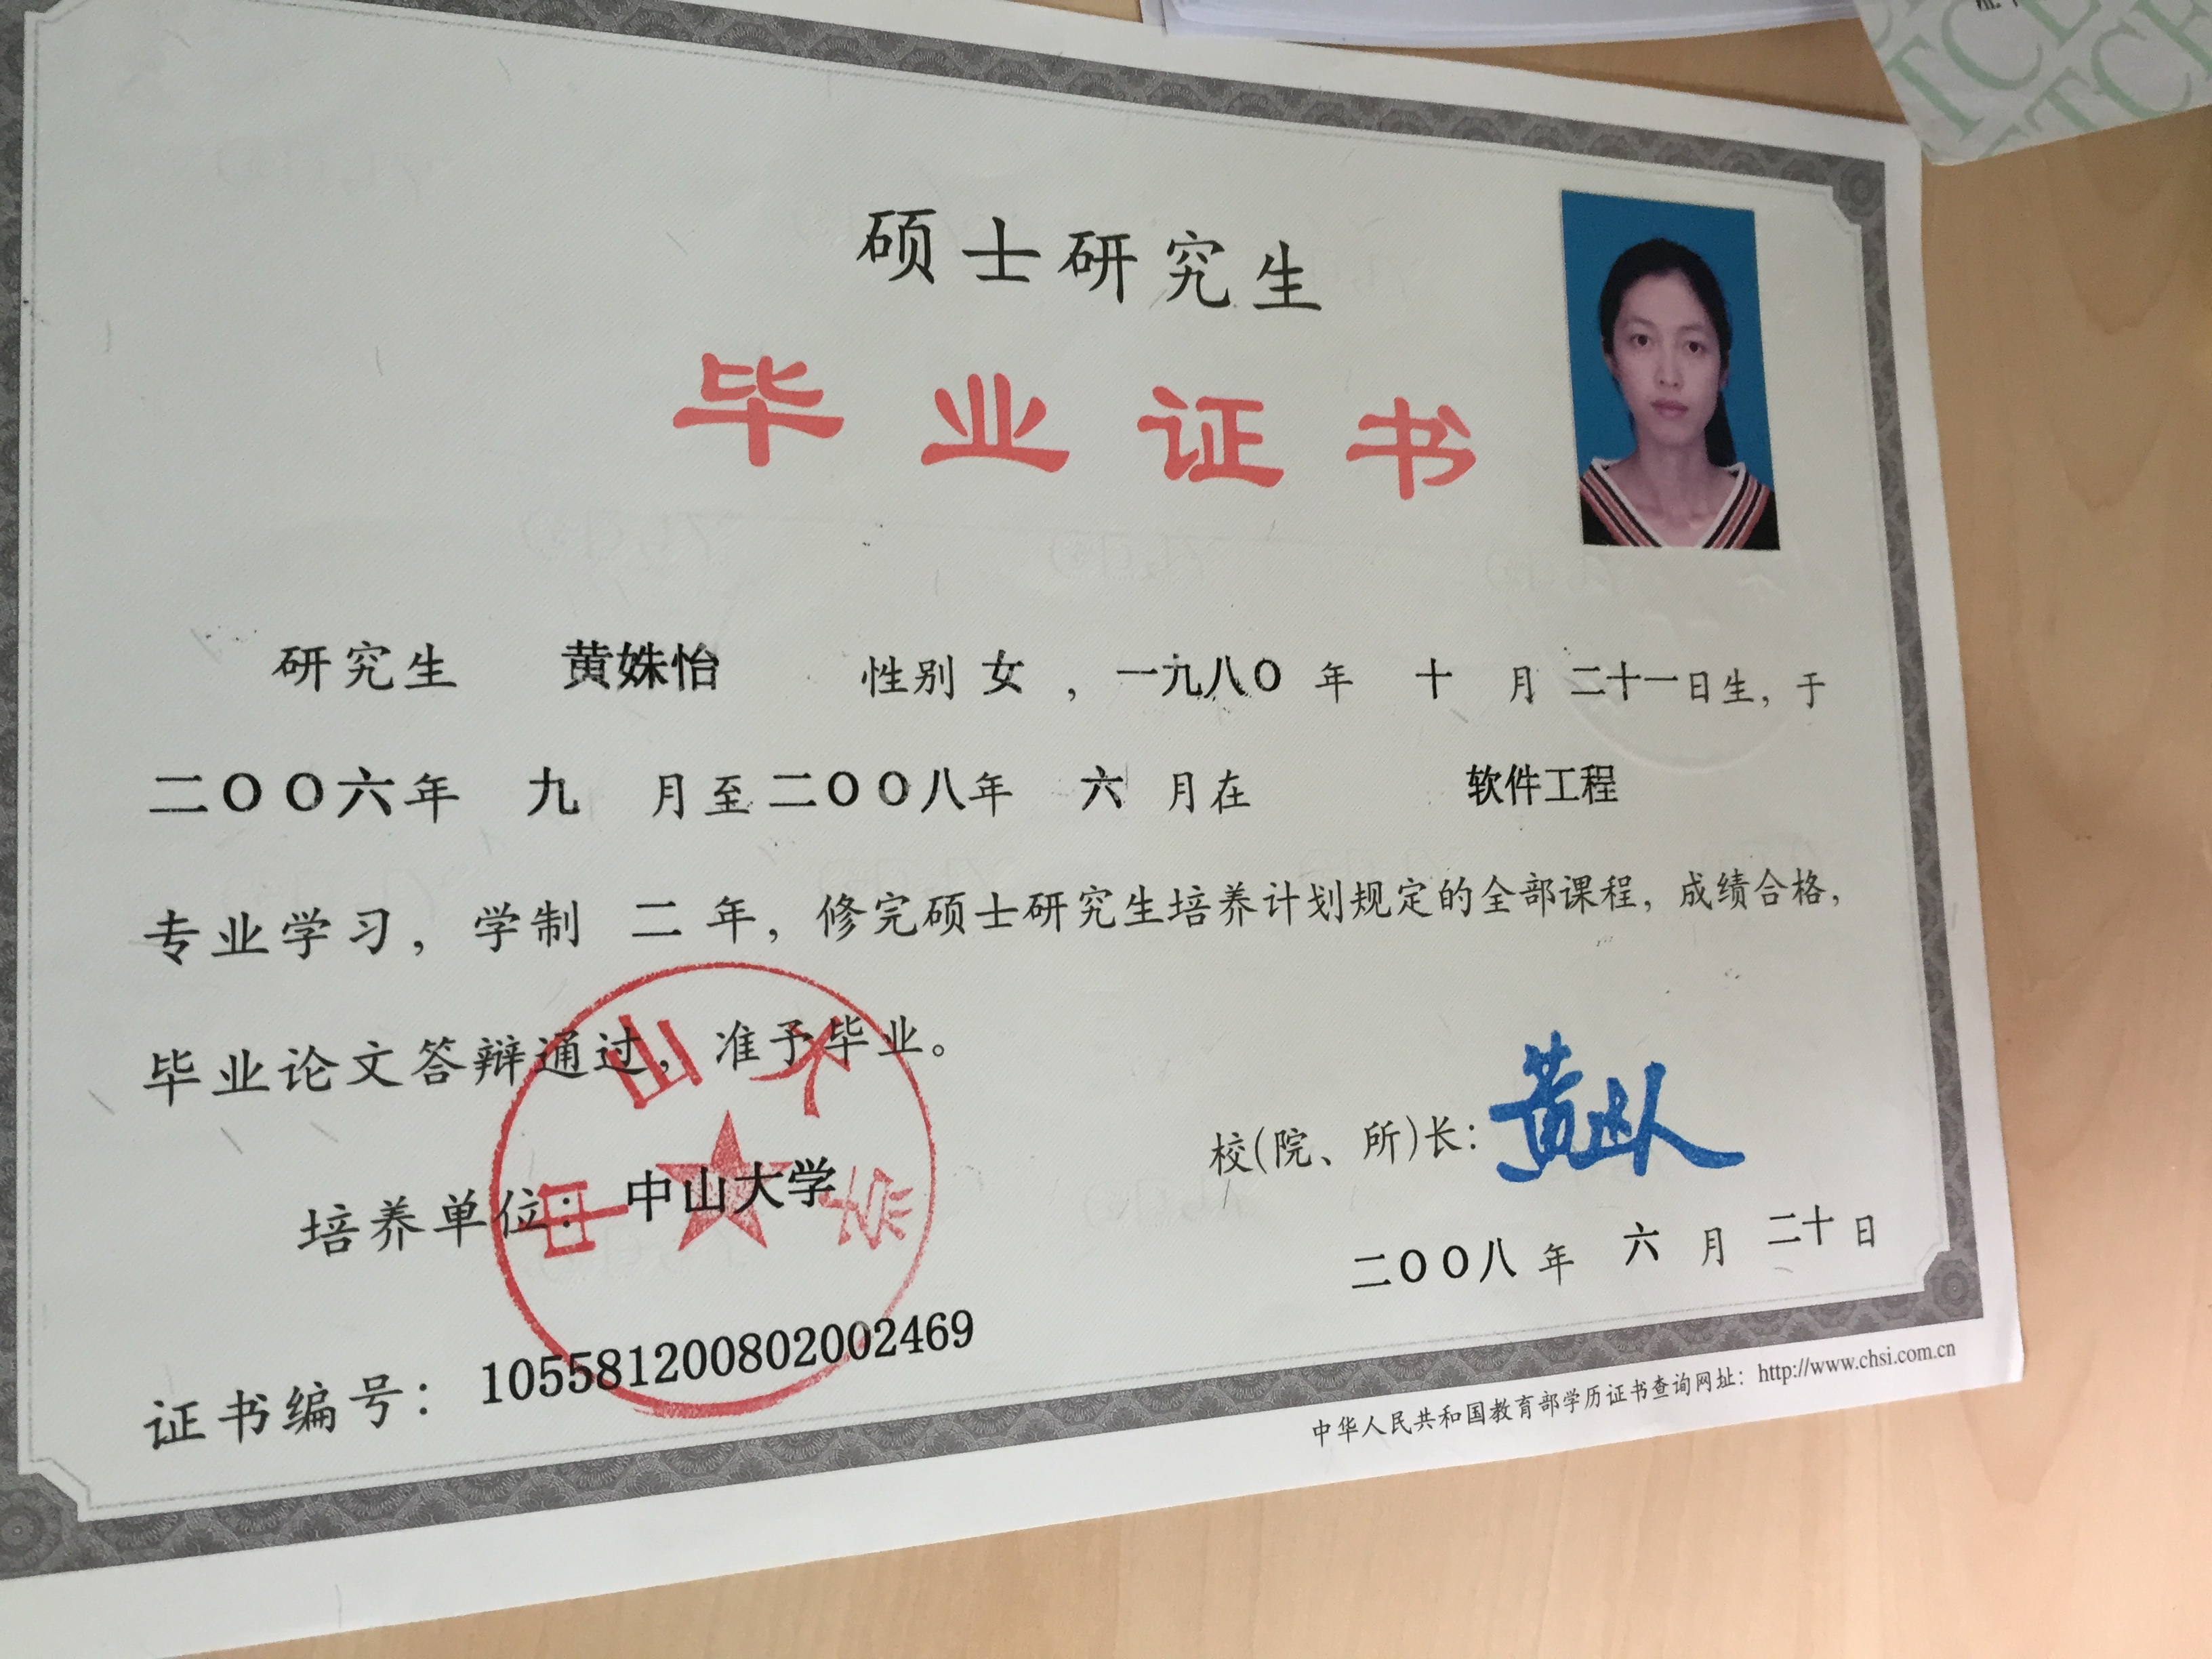 硕士研究生
毕业证书
研究生 黄姝怡 性别 女 ，一九八〇 年 十 月 二十一日生，于
二〇〇六年 九 月至二〇〇八年 六 月在 软件工程
专业学习，学制 二 年，修完硕士研究生培养计划规定的全部课程，成绩合格，
毕业论文答辩通过，准予毕业。
培养单位：中山大学
中山大学
校(院、所)长：黄达人
二〇〇八 年 六 月 二十 日
证书编号：105581200802002469
中华人民共和国教育部学历证书查询网址：http://www.chsi.com.cn